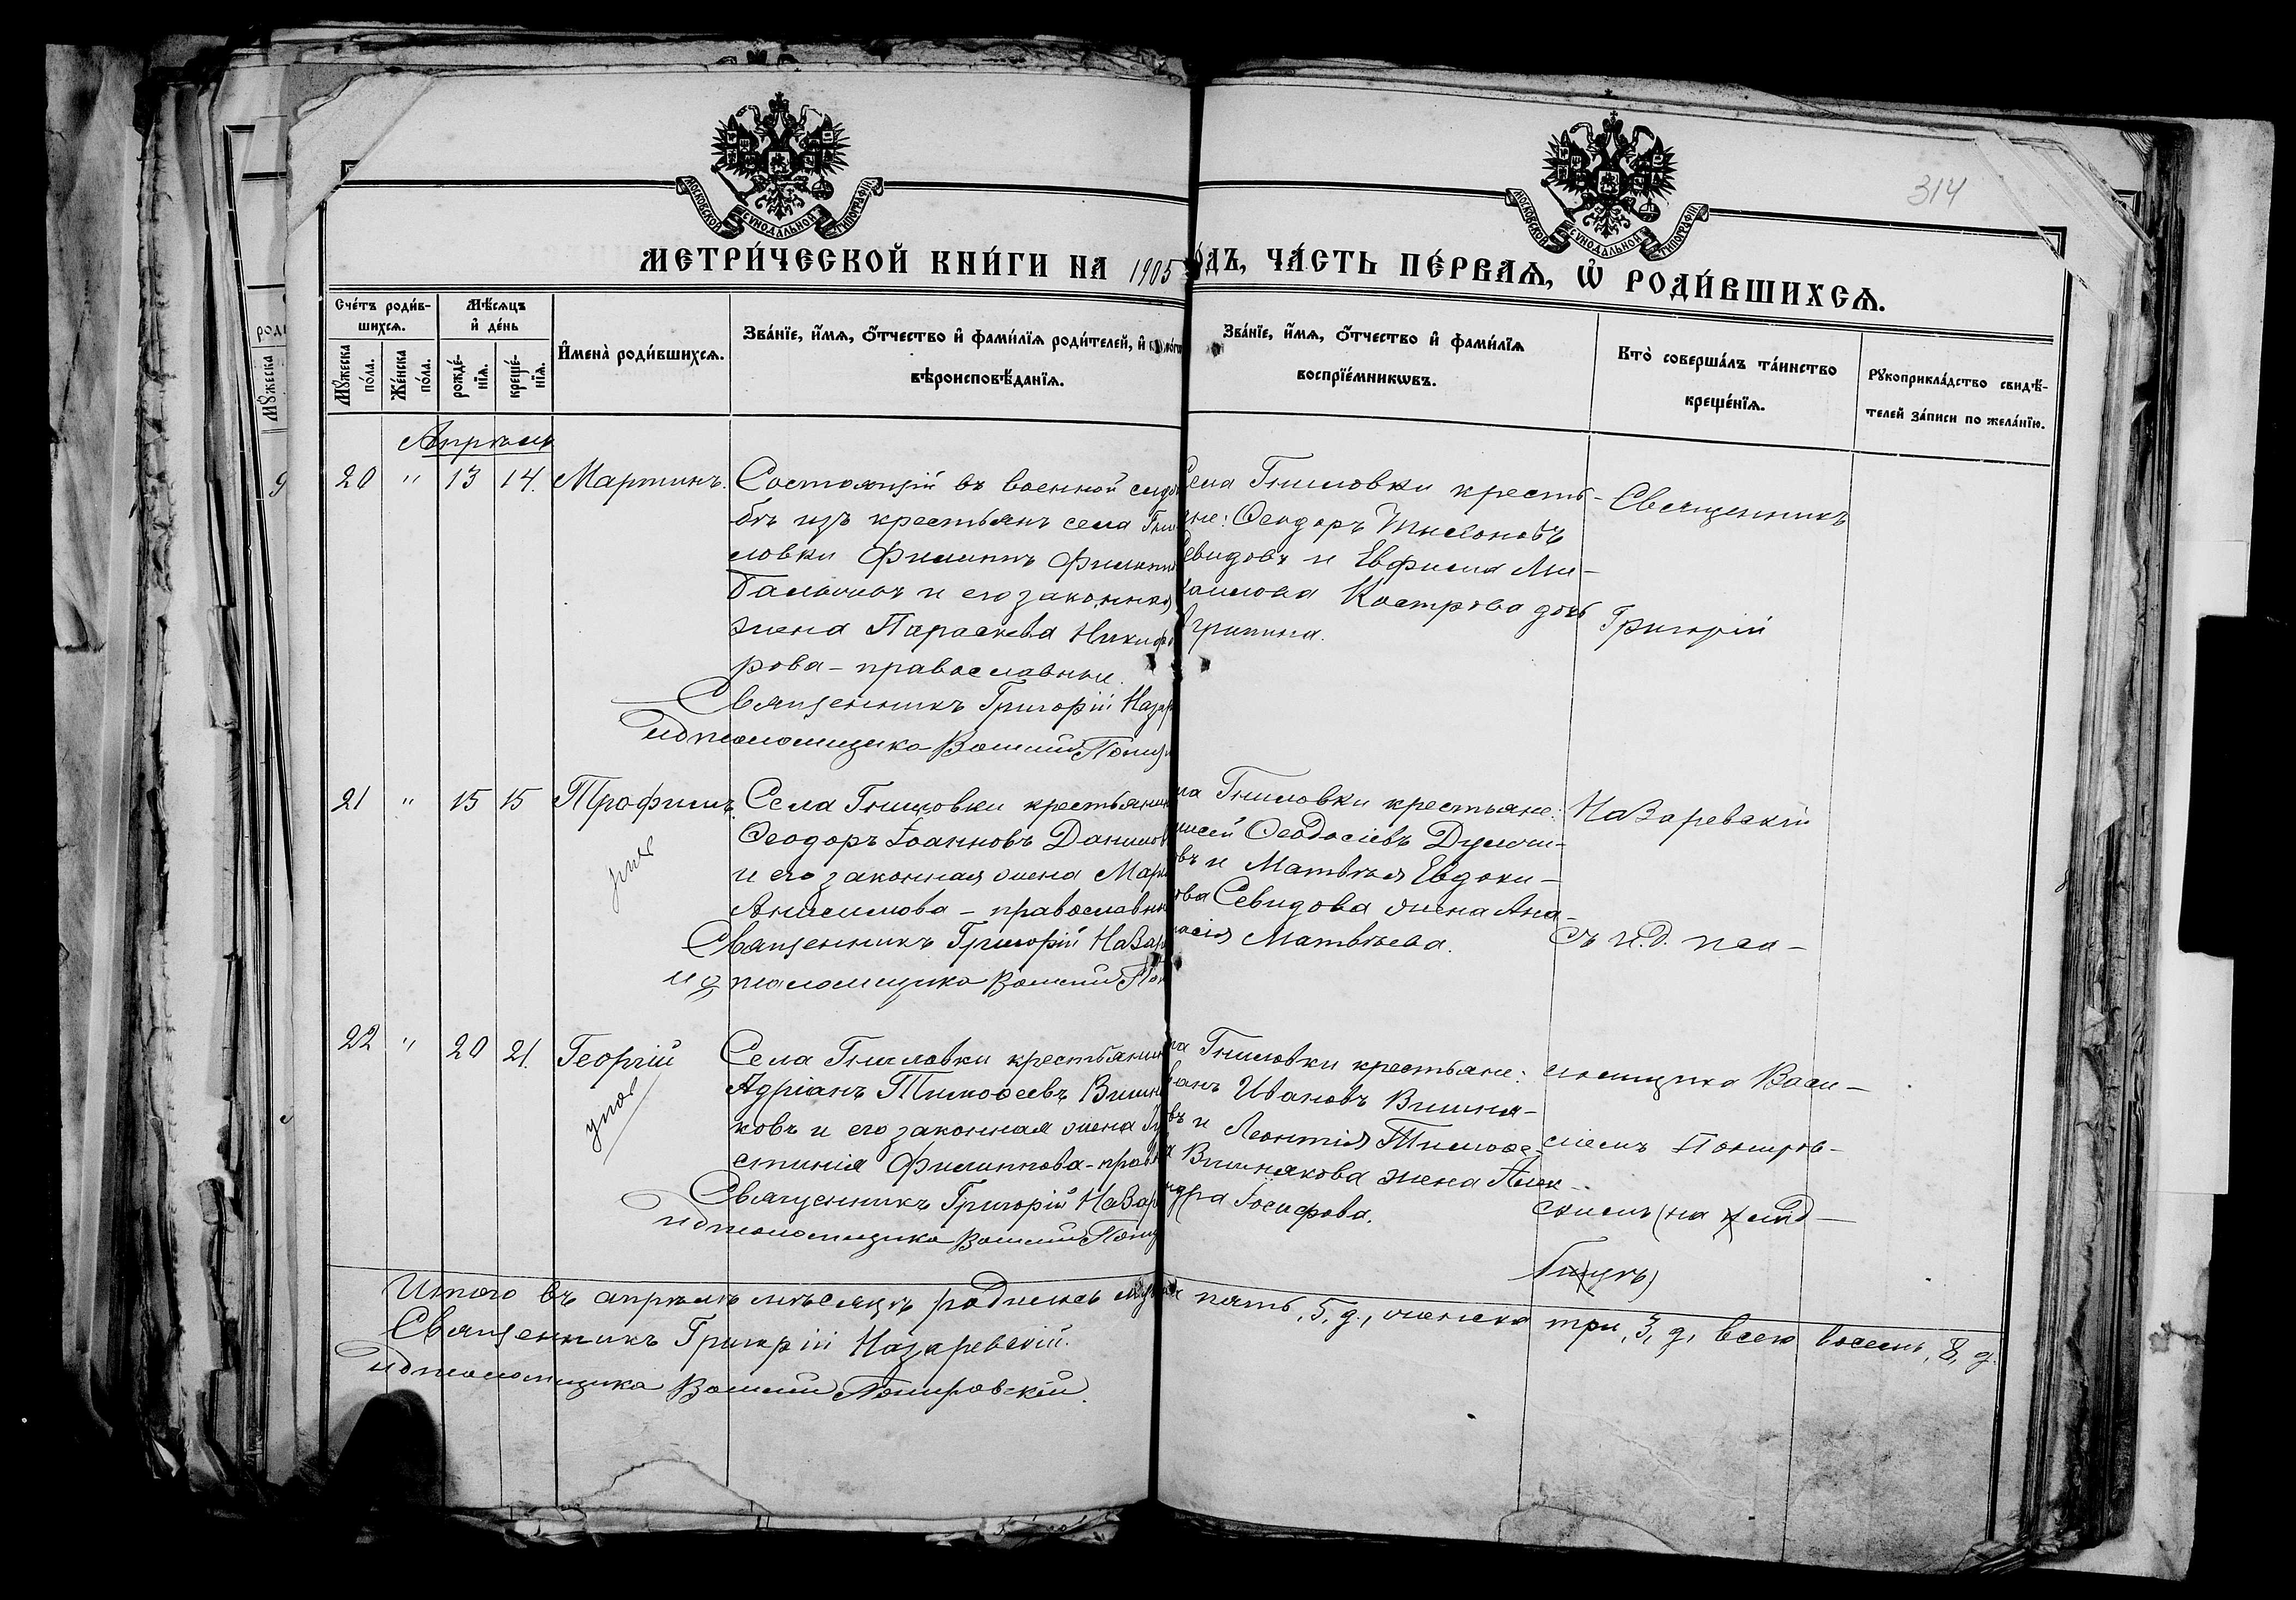 314
МОСКОВСКОЙ СѴНОДАЛЬНОЙ ТИПОГРАФІИ
МОСКОВСКОЙ СѴНОДАЛЬНОЙ ТИПОГРАФІИ
МЕТРИ́ЧЕСКОЙ КНИ́ГИ НА 1905
О́ДЪ, ЧА́СТЬ ПЕ́РВАѦ, Ѡ҆ РОДИ́ВШИХСѦ.
Сче́тъ роди́в-
шихсѧ.
Мꙋ́жеска по́ла.
Же́нска по́ла.
Мѣ́сѧцъ
и҆ де́нь
рожде́-
нїѧ.
креще́-
нїѧ.
И҆мена̀ роди́вшихсѧ.
Зва́нїе, и҆́мѧ, ѻ҆́тчество и҆ фами́лїѧ роди́телей, и҆
вѣроисповѣ́данїѧ.
Зва́нїе, и҆́мѧ, ѻ҆́тчество и҆ фами́лїѧ
воспрїе́мникѡвъ.
Кто̀ соверша́лъ та́инство
креще́нїѧ.
Рꙋкоприкла́дство свидѣ́-
телей за́писи по жела́нїю.
Апрѣль
20 " 13 14. Мартинъ.
Состоящій въ военной служ
бѣ изъ крестьянъ села Гни
ловки Филиппъ Филипп
и его законная
жена Параскева Никифо
рова – православные.
Священникъ Григорій Назар
И д псаломщика Василій Помир
села Гниловки кресть-
яне: Ѳеодоръ Тихоновъ
Севидовъ и Евфимія Ми-
хаилова Кострова дочь
Агрипина.
Священникъ
Григорій
21 " 15 15 Трофимъ
Села Гниловки крестьянин
Ѳеодоръ Іоанновъ Данилов
и его законная жена Марі
Анисимова – православны
Священникъ Григорій Назар
и д псаломщика Василій Пом
ла Гниловки крестьяне:
Ѳеодосіевъ
въ и Матвѣя Евдоки-
ова Севидова жена Ана-
тасія Матвѣева.
Назаревскій
съ и.д. пса-
22 " 20 21. Георгій
умеръ
Села Гниловки крестьянин
Адріанъ Тимоѳеевъ Вишня
ковъ и его законная жена
стинія Филиппова – прав
Священникъ Григорій Назар
и д псаломщика Василій Поми
ла Гниловки крестьяне:
ванъ Ивановъ Вишня-
въ и Леонтія Тимоѳе-
а Вишнякова жена Алек-
ндра Іосифова.
ломщика Васи-
ліемъ Помиров-
скимъ
Итого въ апрѣлѣ мѣсяцѣ родилось муж пять, 5, д., женска три, 3, д, всего восемь, 8, д.
Священникъ Григорій Назаревскій.
И д псаломщика Василій Помировскій.